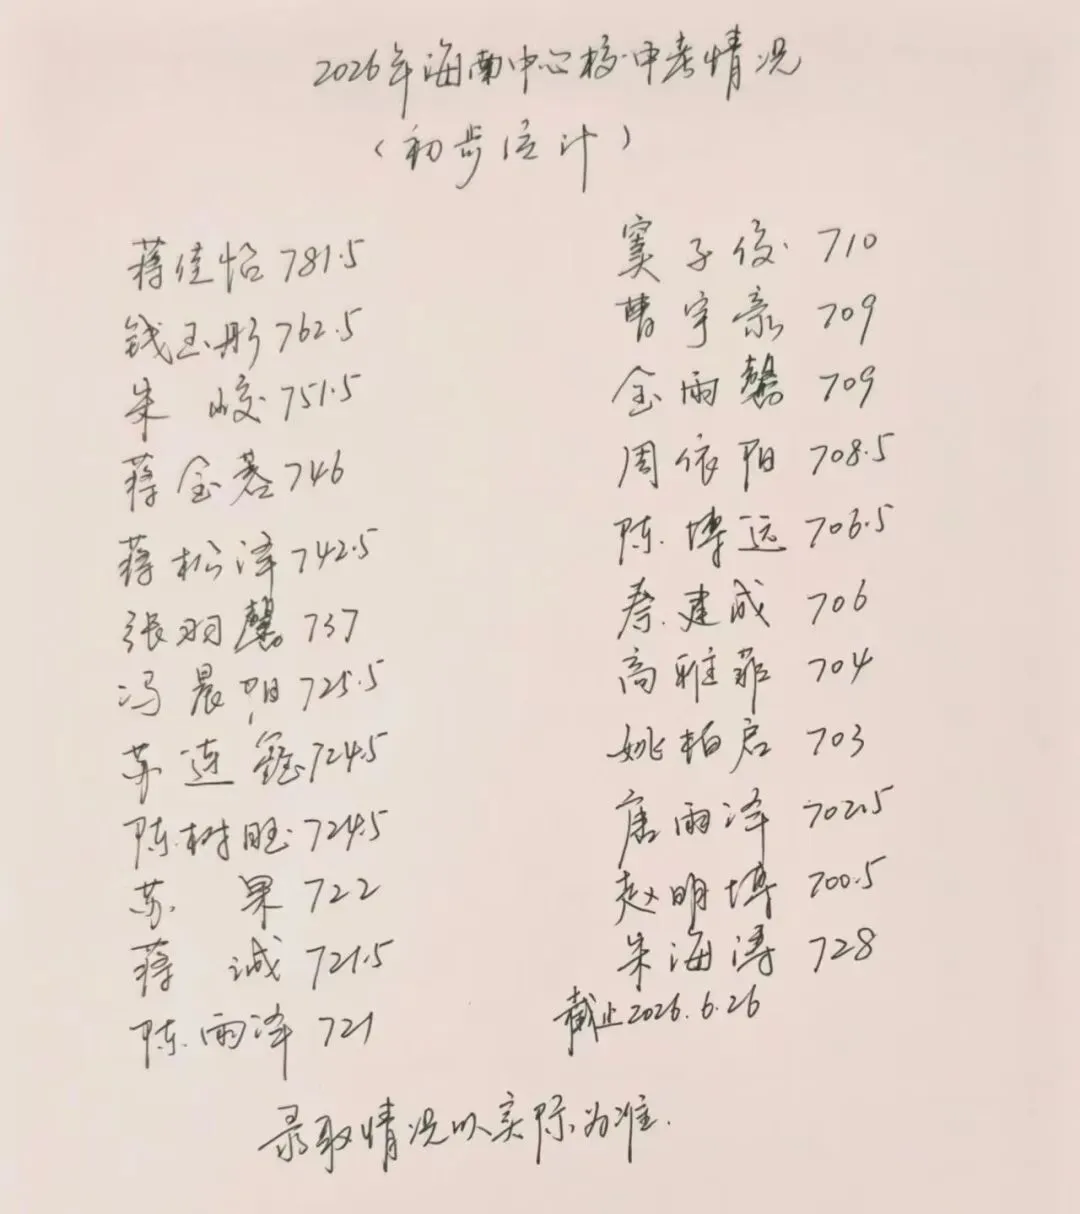 2026年海南中心校中考情况
(初步估计)
蒋佳怡 781.5
钱玉彤 762.5
朱 峻 751.5
蒋金 746
蒋松泽 742.5
张羽馨 737
冯晨阳 725.5
苏连鑫 724.5
陈树旺 724.5
苏 果 722
蒋 诚 721.5
陈雨泽 721
窦子俊 710
曹宇豪 709
金雨馨 709
周依阳 708.5
陈博远 706.5
秦建成 706
高雅菲 704
姚柏启 703
唐雨泽 702.5
赵明博 700.5
朱海涛 728
截止2026.6.26
录取情况以实际为准.